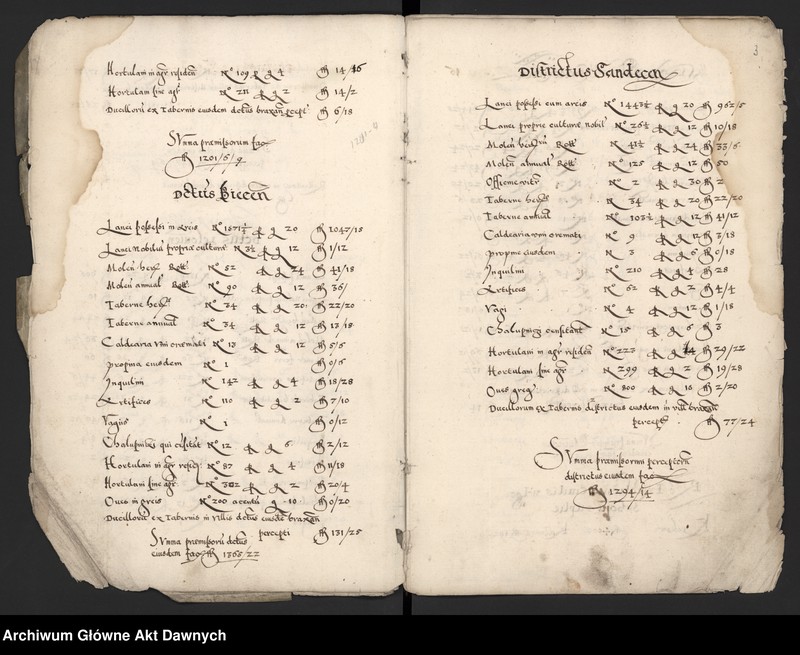 Hortulani in agr residen N° 109 g 4 fl 14/16
Hortulani sine agr N° 211 g 2 fl 14/2
Ducillorum ex Tabernis eiusdem fl 6/18
Summa præmissorum fac
fl 1201/6/9
1201-9
Biecen
Lanei possessi N° 1571½ g 20 fl 1047/18
Lanei nobilium propriæ culturæ N° 3½ g 12 fl 1/12
Molen hered Rott N° 52 g 24 fl 41/18
Molen annual Rott N° 90 g 12 fl 36/
Taberne hered N° 34 g 20 fl 22/20
Taberne annual N° 34 g 12 fl 13/18
Caldearia vini cremati N° 13 g 12 fl 5/6
propina eiusdem N° 1 fl 0/6
Inquilini N° 142 g 4 fl 18/28
Artifices N° 110 g 2 fl 7/10
Vagus N° 1 fl 0/12
Chalupnizi qui N° 12 g 6 fl 2/12
Hortulani in agr resid: N° 87 g 4 fl 11/18
Hortulani sine agr N° 302 g 2 fl 20/4
Oues in N° 200 g 10 fl 0/20
Ducillorum ex Tabernis in villis
percepti fl 131/25
Summa præmissorum
eiusdem fac fl 1365/22
3
Districtus Sandecen
Lanei possessi cum areis N° 1443½ g 20 fl 962/5
Lanei propriæ culturæ nobil N° 26½ g 12 fl 10/18
Molen Rott N° 41½ g 24 fl 33/6
Molen annual Rott N° 125 g 12 fl 50
N° 2 g 30 fl 2
Taberne hered N° 34 g 20 fl 22/20
Taberne annual N° 103½ g 12 fl 41/12
Caldearia vini cremati N° 9 g 12 fl 3/18
propine eiusdem N° 3 g 6 fl 0/18
Inquilini N° 210 g 4 fl 28
Artifices N° 62 g 2 fl 4/4
Vagi N° 4 g 12 fl 1/18
Chalupnizi N° 15 g 6 fl 3
Hortulani in agr residen N° 223 g 4 fl 29/22
Hortulani sine agr N° 299 g 2 fl 19/28
Oues greg N° 800 g 10 fl 2/20
Ducillorum ex Tabernis districtus eiusdem in vill
percept fl 77/24
Summa præmissorum perceptorum
districtus eiusdem fac
fl 1294/14
Archiwum Główne Akt Dawnych